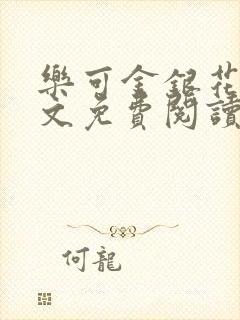 樂可金銀花
文免費閱讀
何龍